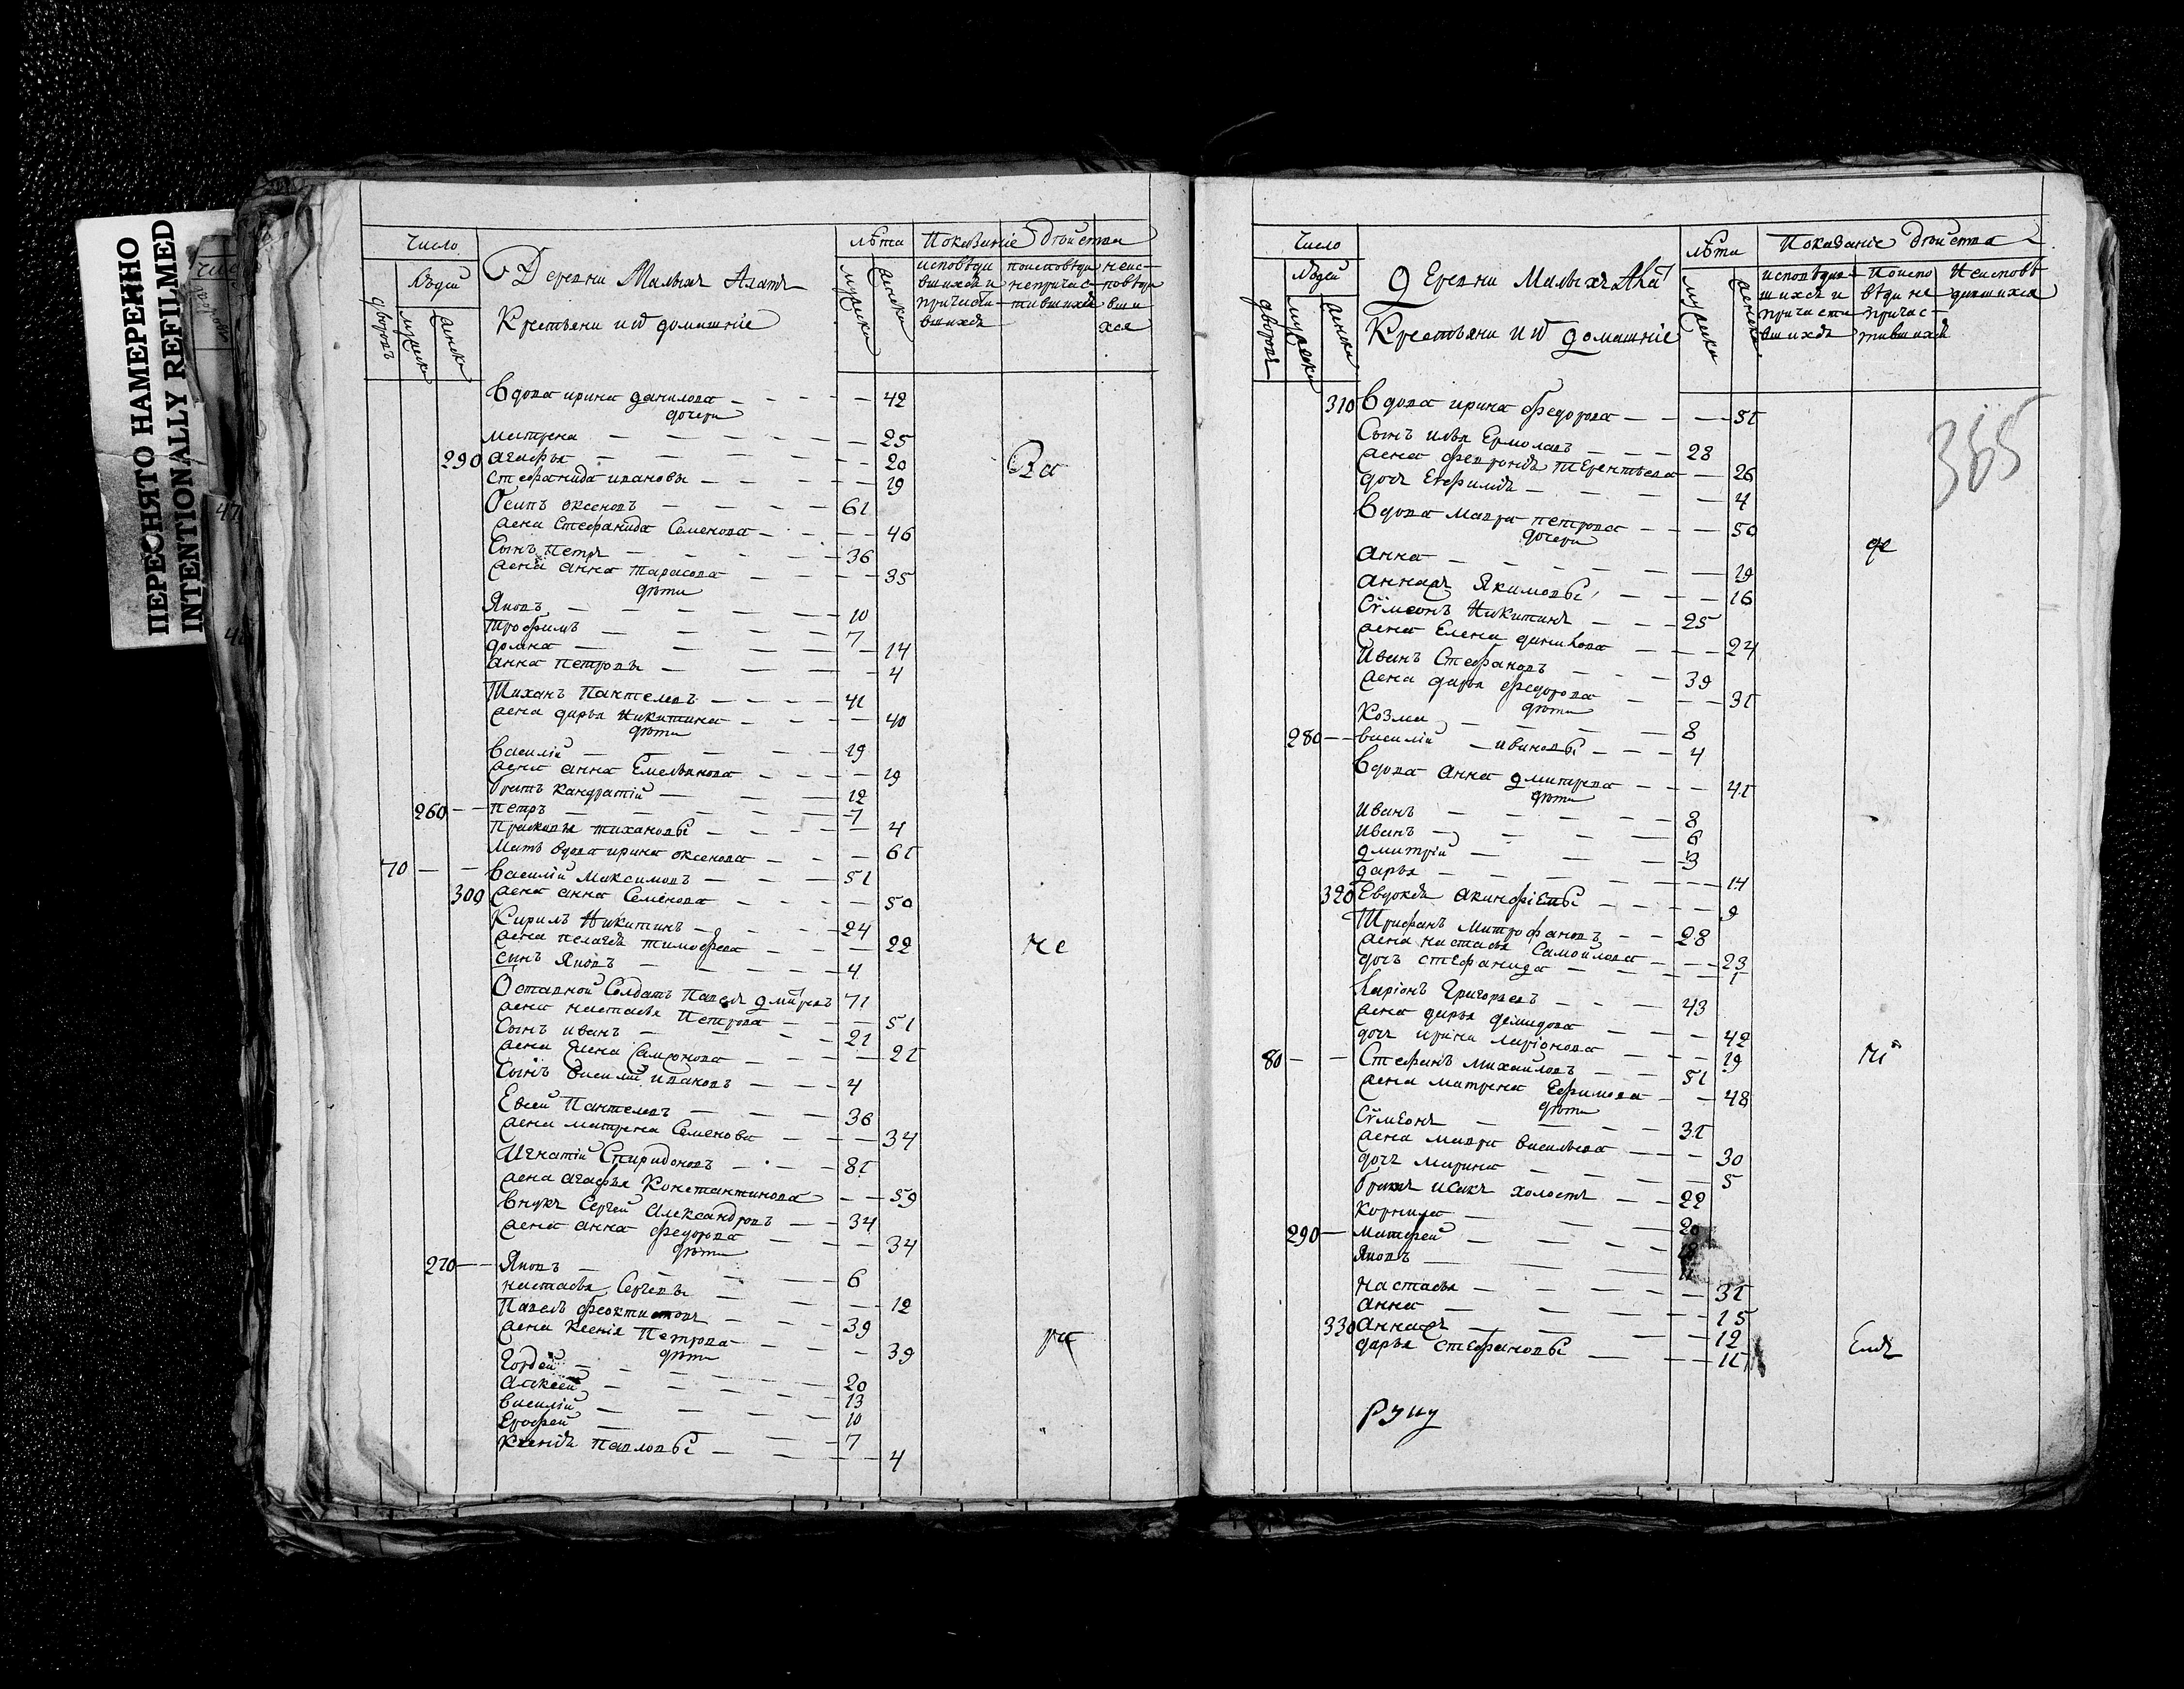 ПЕРЕСНЯТО НАМЕРЕННО
INTENTIONALLY REFILMED
Число
людей
дворовъ
мужеска
женска
Деревни Малыхъ Алатъ
Крестьяни и их домашніе
лѣта
мужеска
женска
Показаніе действа
исповѣдавшихся и причастившихся
поисповѣди непричастившихся
неисповѣдавшихся
вдова ирина данилова — 42
дочери
матрена — 25
290 агафья — 20
стефанида ивановы — 19
Ра
Осипъ оксеновъ — 61
жена Стефанида Семенова — 46
Сынъ Петръ — 36
жена анна тарасова — 35
дѣти
Яковъ — 10
Трофимъ — 7
домна — 14
анна петровы — 4
Тиханъ Пантелевъ — 41
жена дарья никитина — 40
дѣти
василій — 19
жена анна Емельянова — 19
братъ кандратій — 12
260 — петръ — 7
прасковья тихановы — 4
Мать вдова ирина оксенова — 61
70 — василій Максимовъ — 51
300 жена анна Семенова — 50
Кирилъ Никитинъ — 24
жена пелагея тимофева — 22
не
сынъ Яковъ — 4
Оставной Солдатъ Павелъ дмитревъ 71
жена настасья Петрова — 51
Сынъ иванъ — 21
жена Елена — 21
Сынъ Василій ивановъ — 4
Евсей Пантелевъ — 36
жена матрена Семенова — 34
Игнатій Спиридоновъ — 81
жена агафья Константинова — 59
внукъ Сергей Александровъ — 34
жена анна федорова — 34
дѣти
270 — Яковъ — 6
настасья Сергевы — 12
Павелъ феоктистовъ — 39
жена Ксенія Петрова — 39
дѣти
Гордей — 20
алексей — 13
василій — 10
Ерофей — 7
ксенія павловы — 4
Число
людей
дворовъ
мужеска
женска
деревни Малыхъ Ала
Крестьяни и их домашніе
лѣта
мужеска
женска
Показаніе действа
исповѣдавшихся и причастившихся
поисповѣди не причастившихся
Неисповѣдавшихся
365
310 вдова ирина федорова — 51
Сынъ илья Ермолавъ — 28
жена февронья терентьева — 26
дочь Евфимія — 4
вдова Мавра петрова — 50
дочери
де
анна — 19
анна ж Якимовы — 16
Сѵмеонъ Никитинъ — 25
жена Елена данилова — 24
Иванъ Стефановъ — 39
жена дарья федорова — 31
дѣти
Козма — 8
280 — василій ивановы — 4
вдова анна дмитрева — 41
дѣти
иванъ — 8
иванъ — 6
дмитрій — 3
дарья — 14
320 Евдокія акинфіевы — 9
Трифанъ Митрофановъ — 28
жена настасья Самойлова — 23
дочь стефанида — 1
Ларіонъ Григорьевъ — 43
жена дарья демидова — 42
дочь ирина ларіонова — 19
80 — Стефанъ Михайловъ — 51
жена матрена Ефимова — 48
дѣти
Сѵмеонъ — 31
жена мавра васильева — 30
дочь марина — 5
братъ исакъ холостъ — 22
Корнила — 20
290 — матфей — 18
Яковъ — 11
настасья — 31
анна — 15
330 анна ж — 12
дарья стефановы — 11
руку